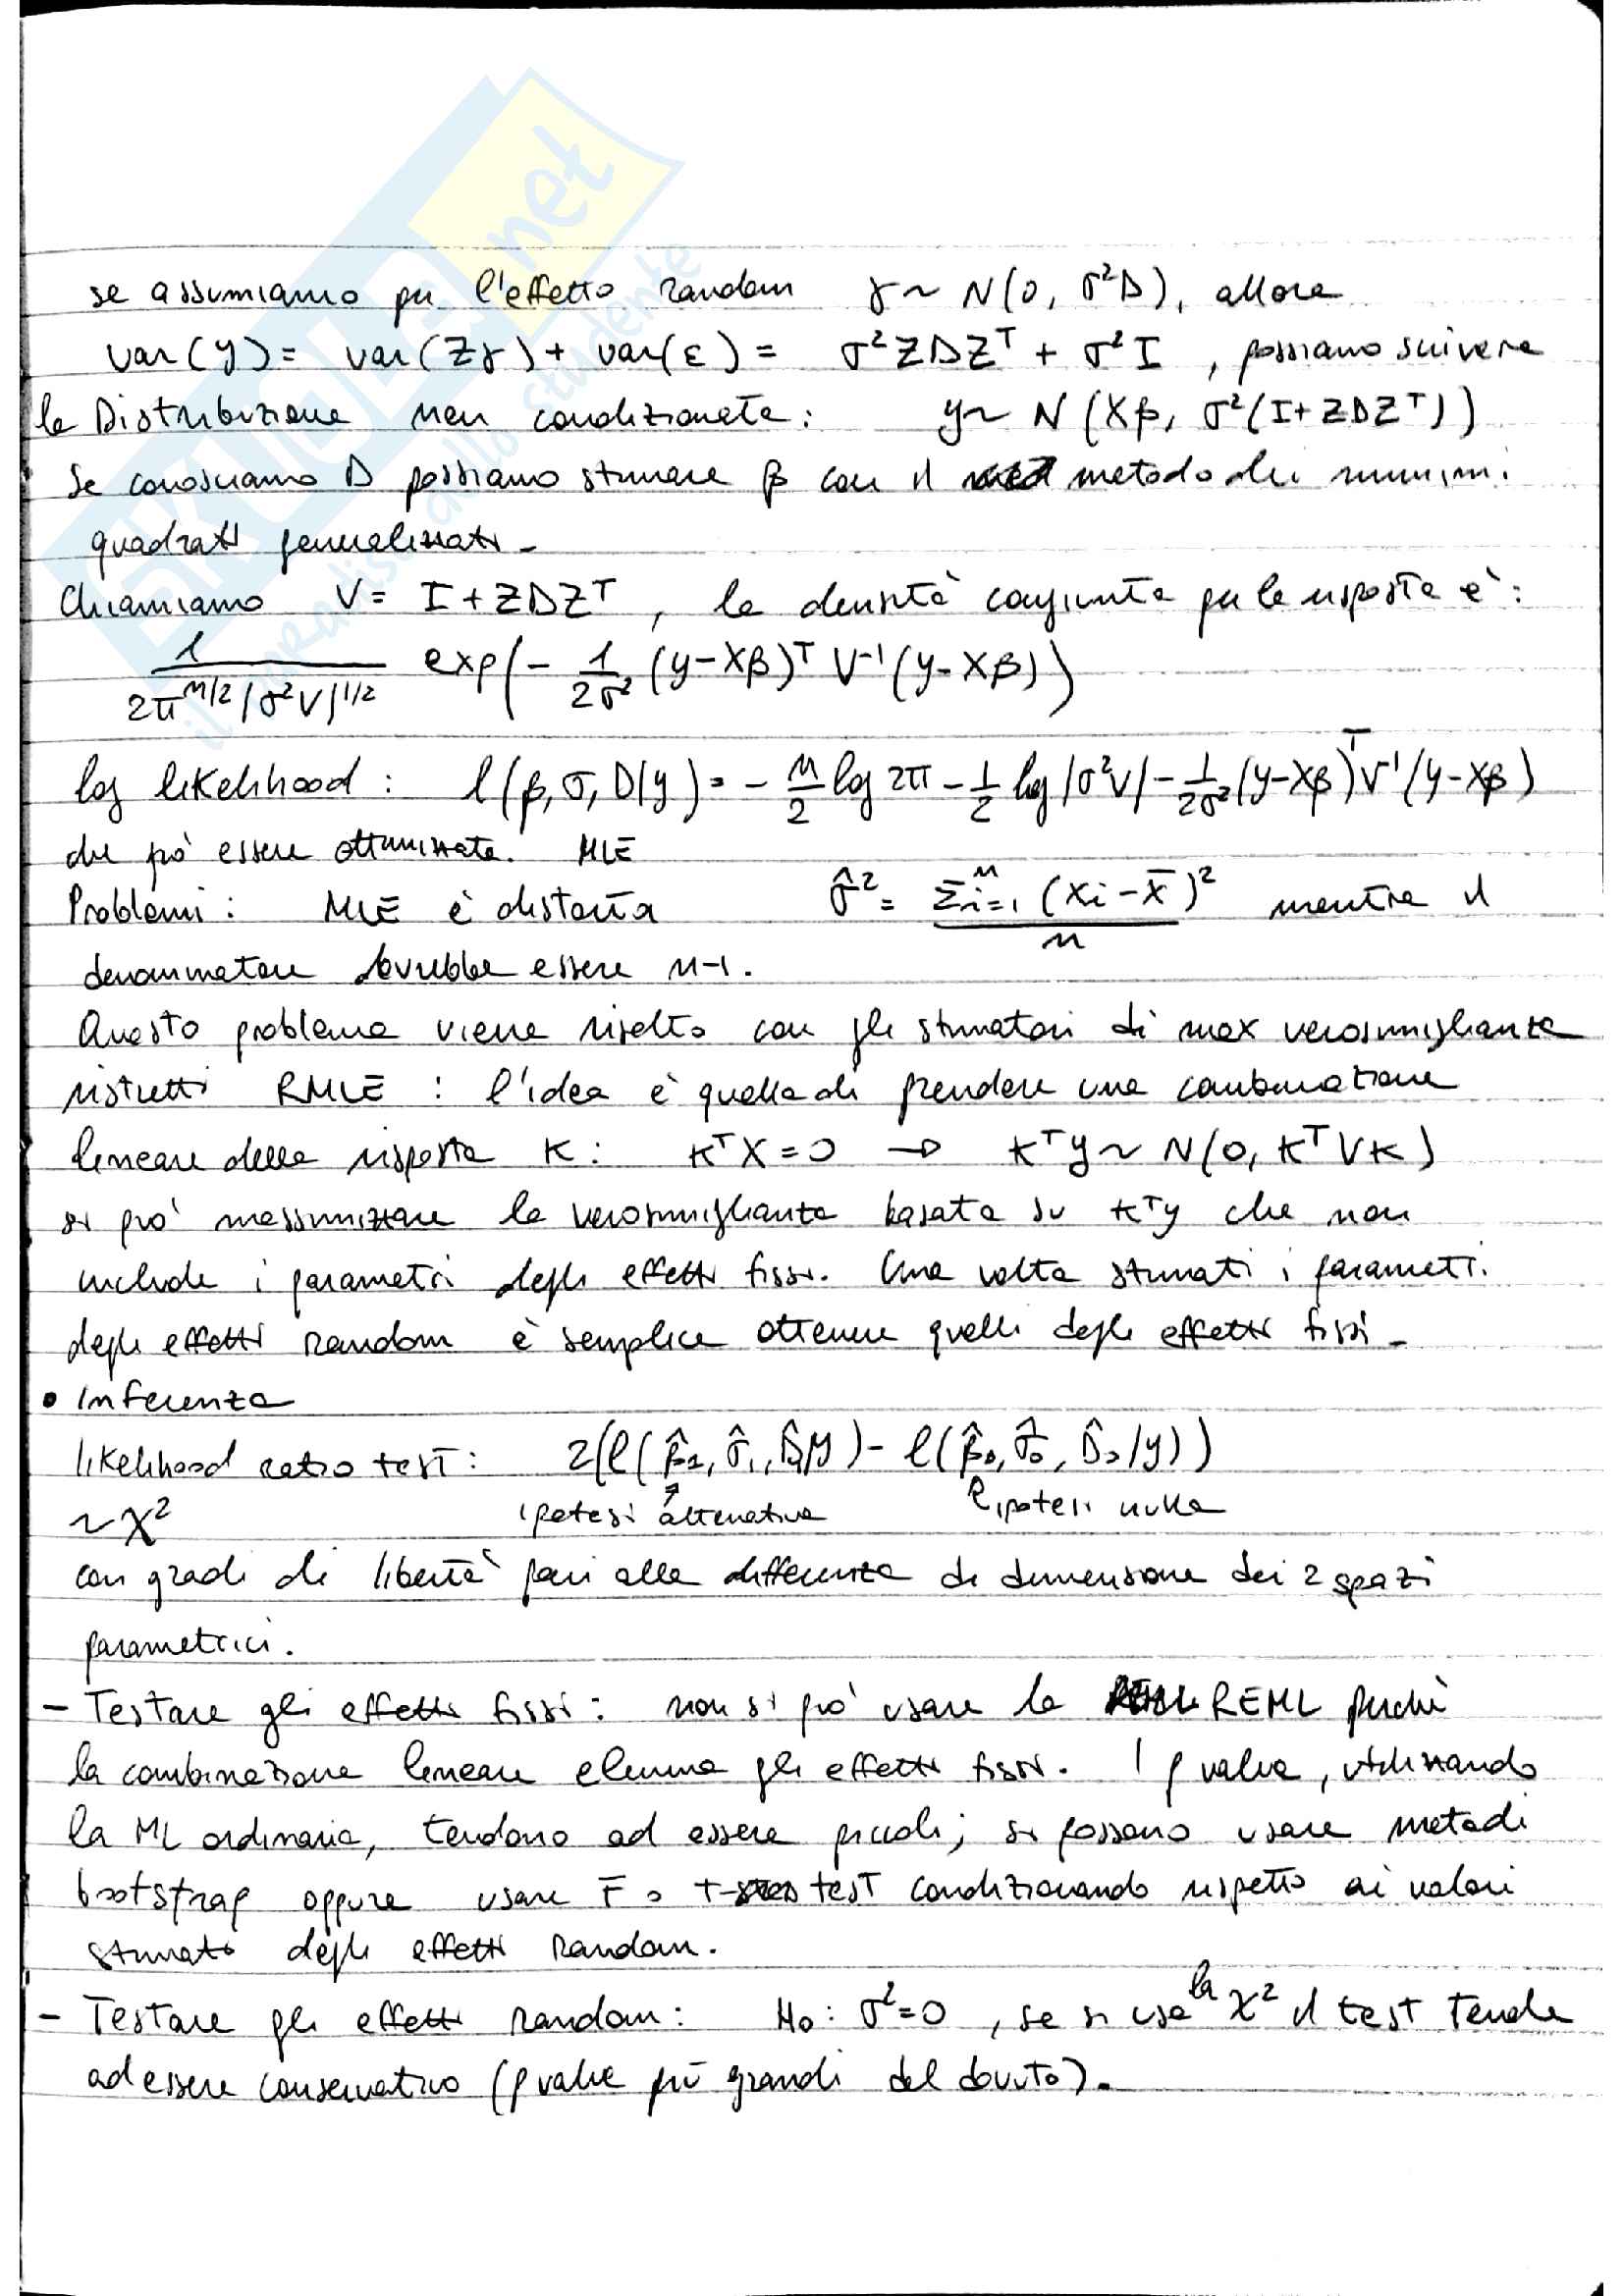 SKUOLA.net
il paradiso dello studente
se assumiamo per l'effetto random γ ~ N(0, σ²D), allora
var(y) = var(Zγ) + var(ε) = σ²ZDZᵀ + σ²I , possiamo scrivere
la Distribuzione non condizionata: y ~ N(Xβ, σ²(I+ZDZᵀ))
se conosciamo D possiamo stimare β con il metodo dei minimi
quadrati generalizzati -
Chiamiamo V = I + ZDZᵀ , la densità congiunta per la risposta è :
1 / 2π^{n/2} |σ²V|^{1/2} exp(- 1/2σ² (y-Xβ)ᵀ V⁻¹ (y-Xβ))
log likelihood : l(β, σ, D|y) = - n/2 log 2π - 1/2 log |σ²V| - 1/2σ² (y-Xβ)ᵀ V⁻¹ (y-Xβ)
che può essere ottimizzata. MLE
Problemi : MLE è distorta σ̂² = Σ_{i=1}^n (xi - x̄)² / n mentre il
denominatore dovrebbe essere n-1.
Questo problema viene risolto con gli stimatori di max verosimiglianza
ristretti RMLE : l'idea è quella di prendere una combinazione
lineare della risposta K : KᵀX = 0 → Kᵀy ~ N(0, KᵀVK)
si può massimizzare la verosimiglianza basata su Kᵀy che non
include i parametri degli effetti fissi. Una volta stimati i parametri
degli effetti random è semplice ottenere quelli degli effetti fissi -
• Inferenza
likelihood ratio test : 2(l(β̂₁, σ̂₁, D̂₁|y) - l(β̂₀, σ̂₀, D̂₀|y))
~ χ² ipotesi alternativa ipotesi nulla
con gradi di libertà pari alla differenza di dimensione dei 2 spazi
parametrici.
- Testare gli effetti fissi : non si può usare la REML perchè
la combinazione lineare elimina gli effetti fissi. I p value, utilizzando
la ML ordinaria, tendono ad essere piccoli; si possono usare metodi
bootstrap oppure usare F o T-test condizionando rispetto ai valori
stimati degli effetti Random.
- Testare gli effetti random : H₀ : σ² = 0 , se si usa la χ² il test tende
ad essere conservativo (p value più grandi del dovuto).